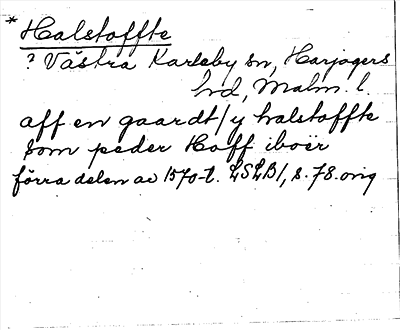 * Halstoffte
? Västra Karleby sn, Harjagers
hrd, Malm. l.
aff en gaardt / y halstoffte
som peder Hoff iboër
förra delen av 1570-t. LSLB1, s. 78. orig